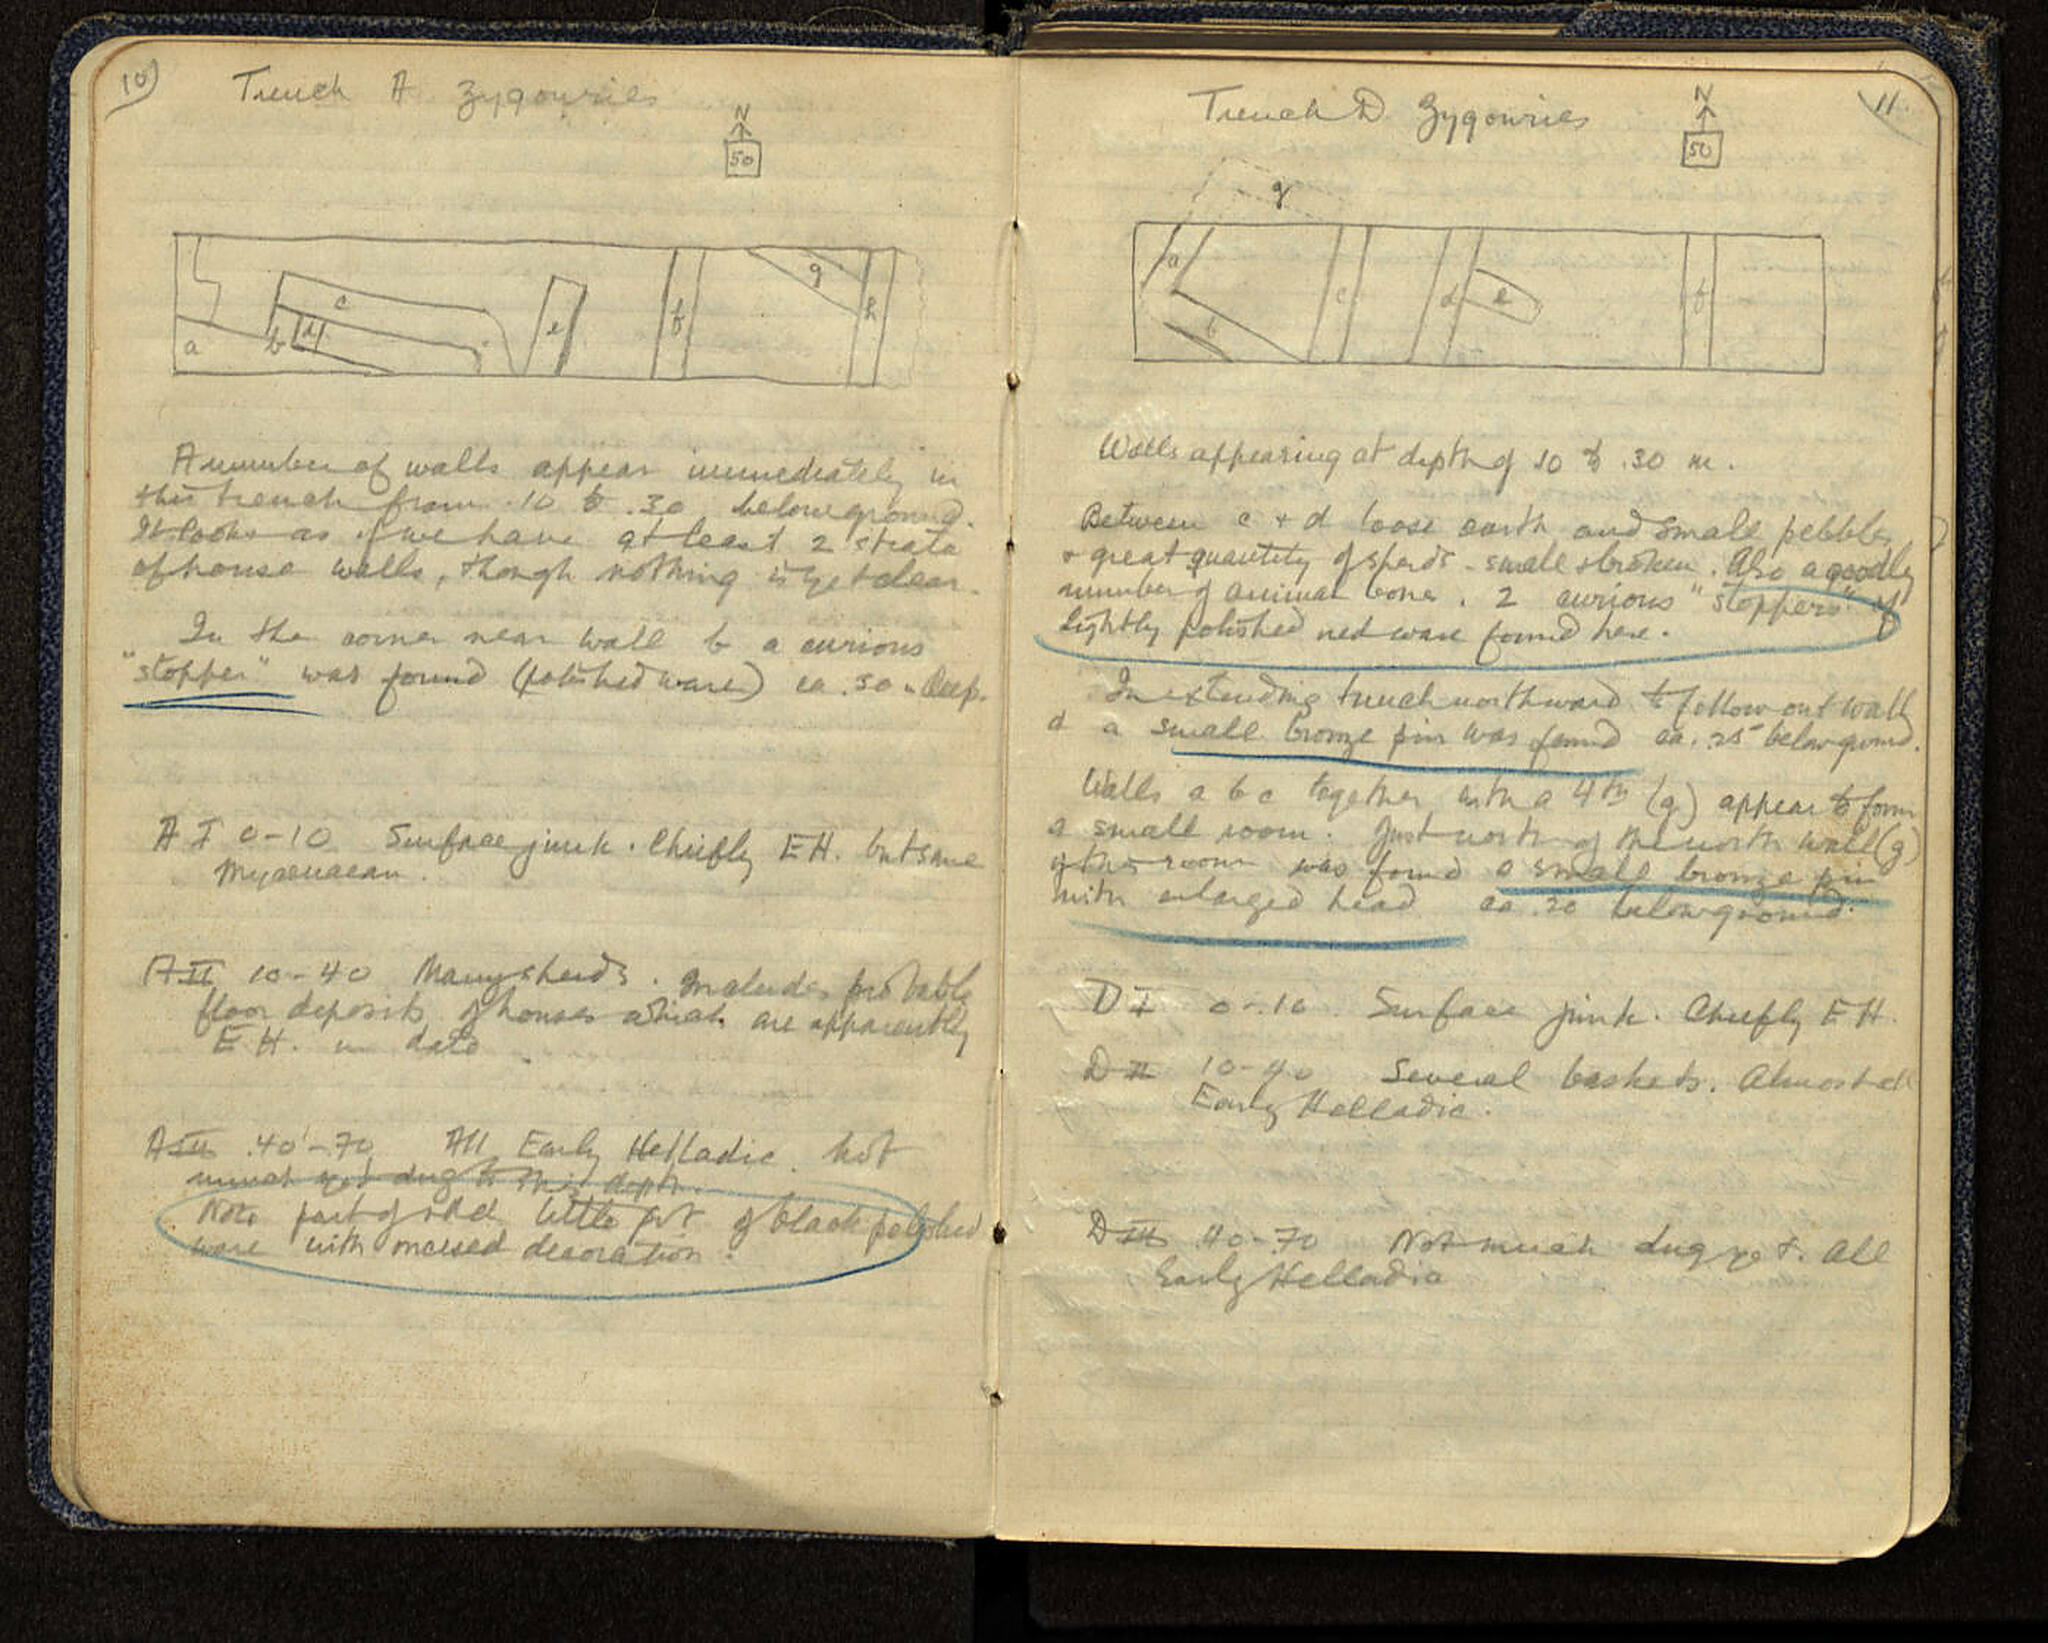 10
Trench A Zygouries
N
50
a
b
c
d
e
f
g
h
A number of walls appear immediately in
this trench from .10 to .30 below ground.
It looks as if we have at least 2 strata
of house walls, though nothing is yet clear.
In the corner near wall b a curious
"stopper" was found (polished ware) ca .30 m deep.
A I 0-10 Surface junk. Chiefly EH. but some
Mycenaean.
A II 10-40 Many sherds. Includes probable
floor deposits of houses which are apparently
EH. in date
A III .40-70 All Early Helladic. Not
much yet dug to this depth.
Note part of little pot of black polished
ware with incised decoration.
11
Trench D Zygouries
N
50
g
a
b
c
d
e
f
Walls appearing at depth of 10 to .30 m.
Between c + d loose earth and small pebbles
+ great quantity of sherds - small + broken. Also a goodly
number of animal bones. 2 curious "stoppers" of
lightly polished red ware found here.
In extending trench northward to follow out wall
d a small bronze pin was found ca. .25 below ground.
Walls a b c together with a 4th (g) appear to form
a small room. Just north of the north wall (g)
of this room was found a small bronze pin
with enlarged head ca .20 below ground.
D I 0-.10 Surface junk. Chiefly EH.
D II 10-40 Several baskets. Almost all
Early Helladic.
D III .40-.70 Not much dug yet. All
Early Helladic